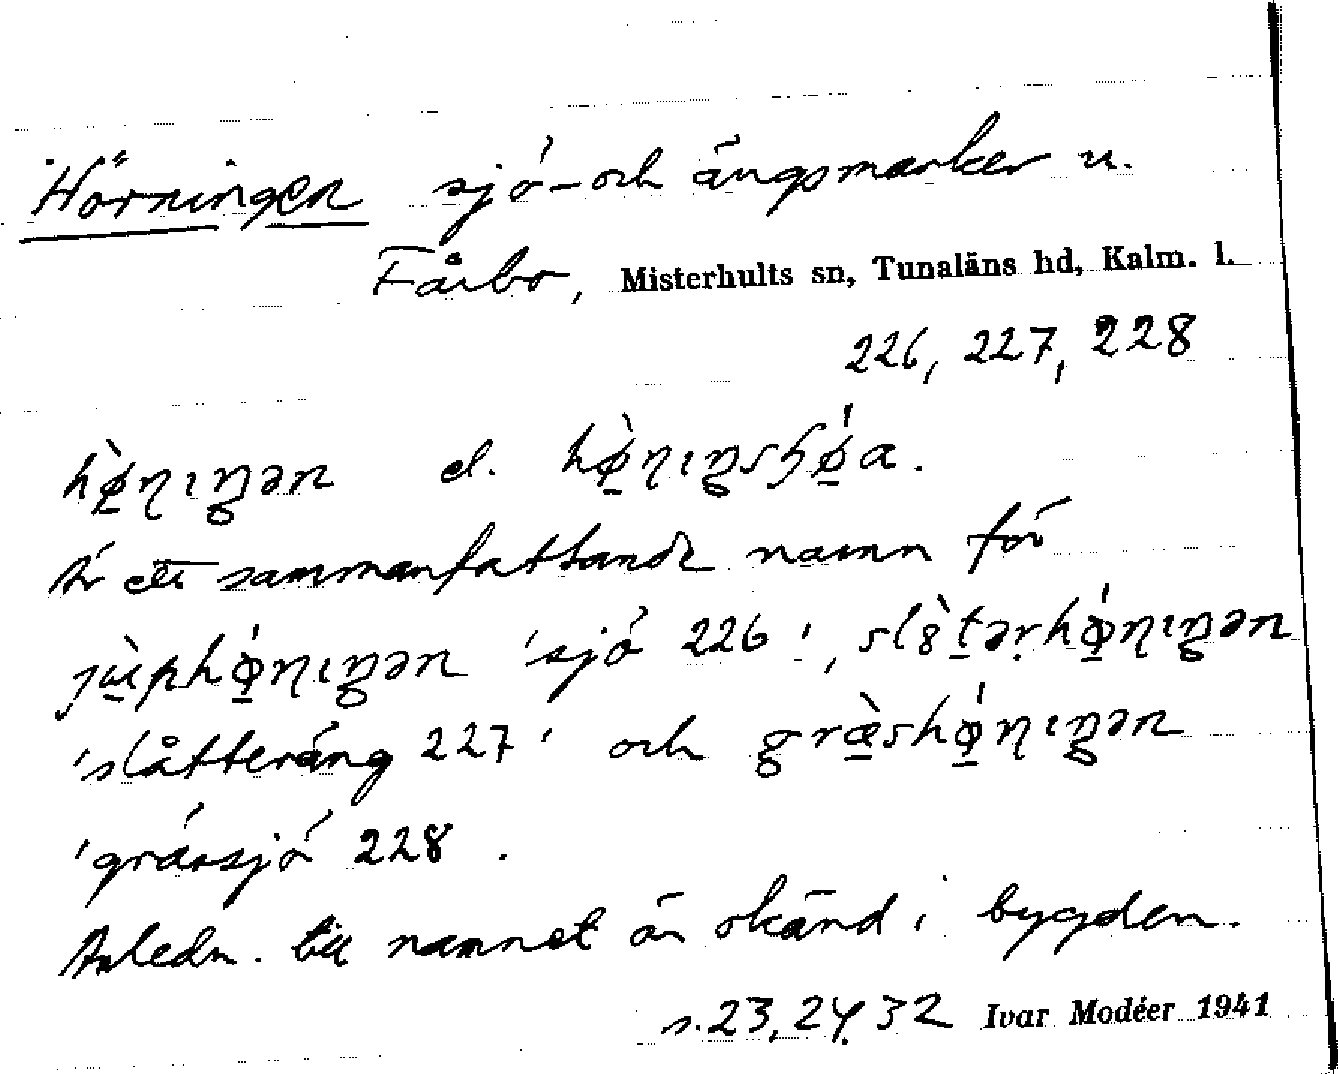 Hörningen sjö- och ängsmarker u.
Fårbo, Misterhults sn, Tunaläns hd, Kalm. l.
226, 227, 228
hø̀ṇıŋən el. hø̀ṇıŋsɧǿa.
Är ett sammanfattande namn för
jùphǿṇıŋən 'sjö 226', slàtərhǿṇıŋən
'slåtteräng 227' och græ̀shǿṇıŋən
'grässjö 228.
Anledn. till namnet är okänd i bygden.
s. 23, 24, 32 Ivar Modéer 1941